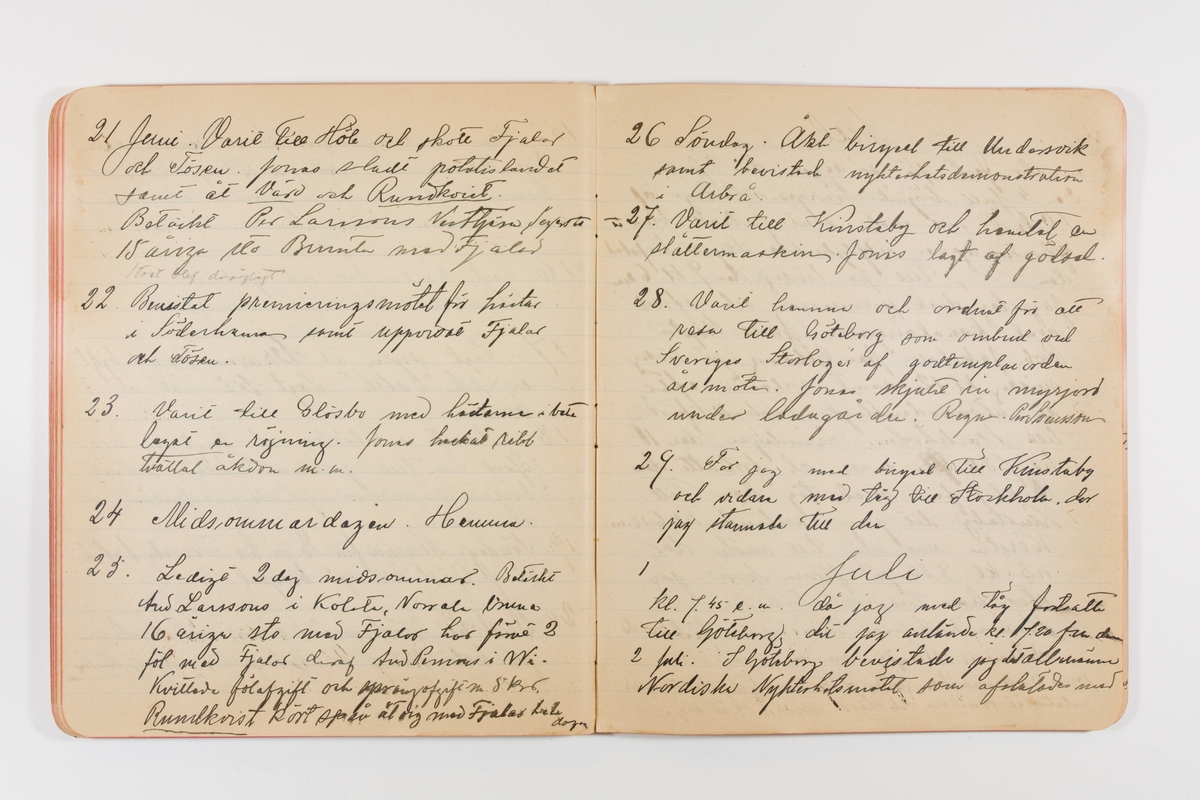 21 Juni. Varit till Höle och skote Fjalar
och Tösen. Jonas sladt potatislandet
samt åt Vård och Rundkvist.
Betäckt Per Larssons Vestтjärn
15 åriga sto Brunta med Fjalar
22. Bevistat premieringsmötet för hästar
i Söderhamn samt uppvisat Fjalar
och Tösen.
23. Varit till Glösbo med hästarne i bete
lagat en röjning. Jonas huckat ribb
tvättat åkdon m.m.
24 Midsommardagen. Hemma.
25. Ledigt 2 dag midsommar. Betäckt
And Larssons i Kolsta, Norrala bruna
16 åriga sto med Fjalar har förut 2
föl med Fjalar deraf And Persons i Wi.
Kvittade fölafgift och språngafgift m. 8 kr.
Rundkvist kört åt sig med Fjalar hela
dagen
26 Söndag. Åkt bicycel till Undersvik
samt bevistade nykterhetsdemonstration
i Arbrå.
27. Varit till Kinstaby och hemtat en
slåttermaskin. Jonas lagt af gödsel.
28. Varit hemma och ordnat för att
resa till Göteborg som ombud vid
Sveriges Storloger af godtemplarorden
årsmöte. Jonas skjutit in myrjord
under ladugården. Regn. Per Svensson
29. For jag med bicycel till Kinstaby
och vidare med tåg till Stockholm, der
jag stannade till den
1 Juli
kl. 7.45 e.m. då jag med tåg fortsatte
till Göteborg, dit jag anlände kl. 7.20 fm den
2 Juli. I Göteborg bevistade jag det allmänna
Nordiska Nykterhetsmötet som afslutades med